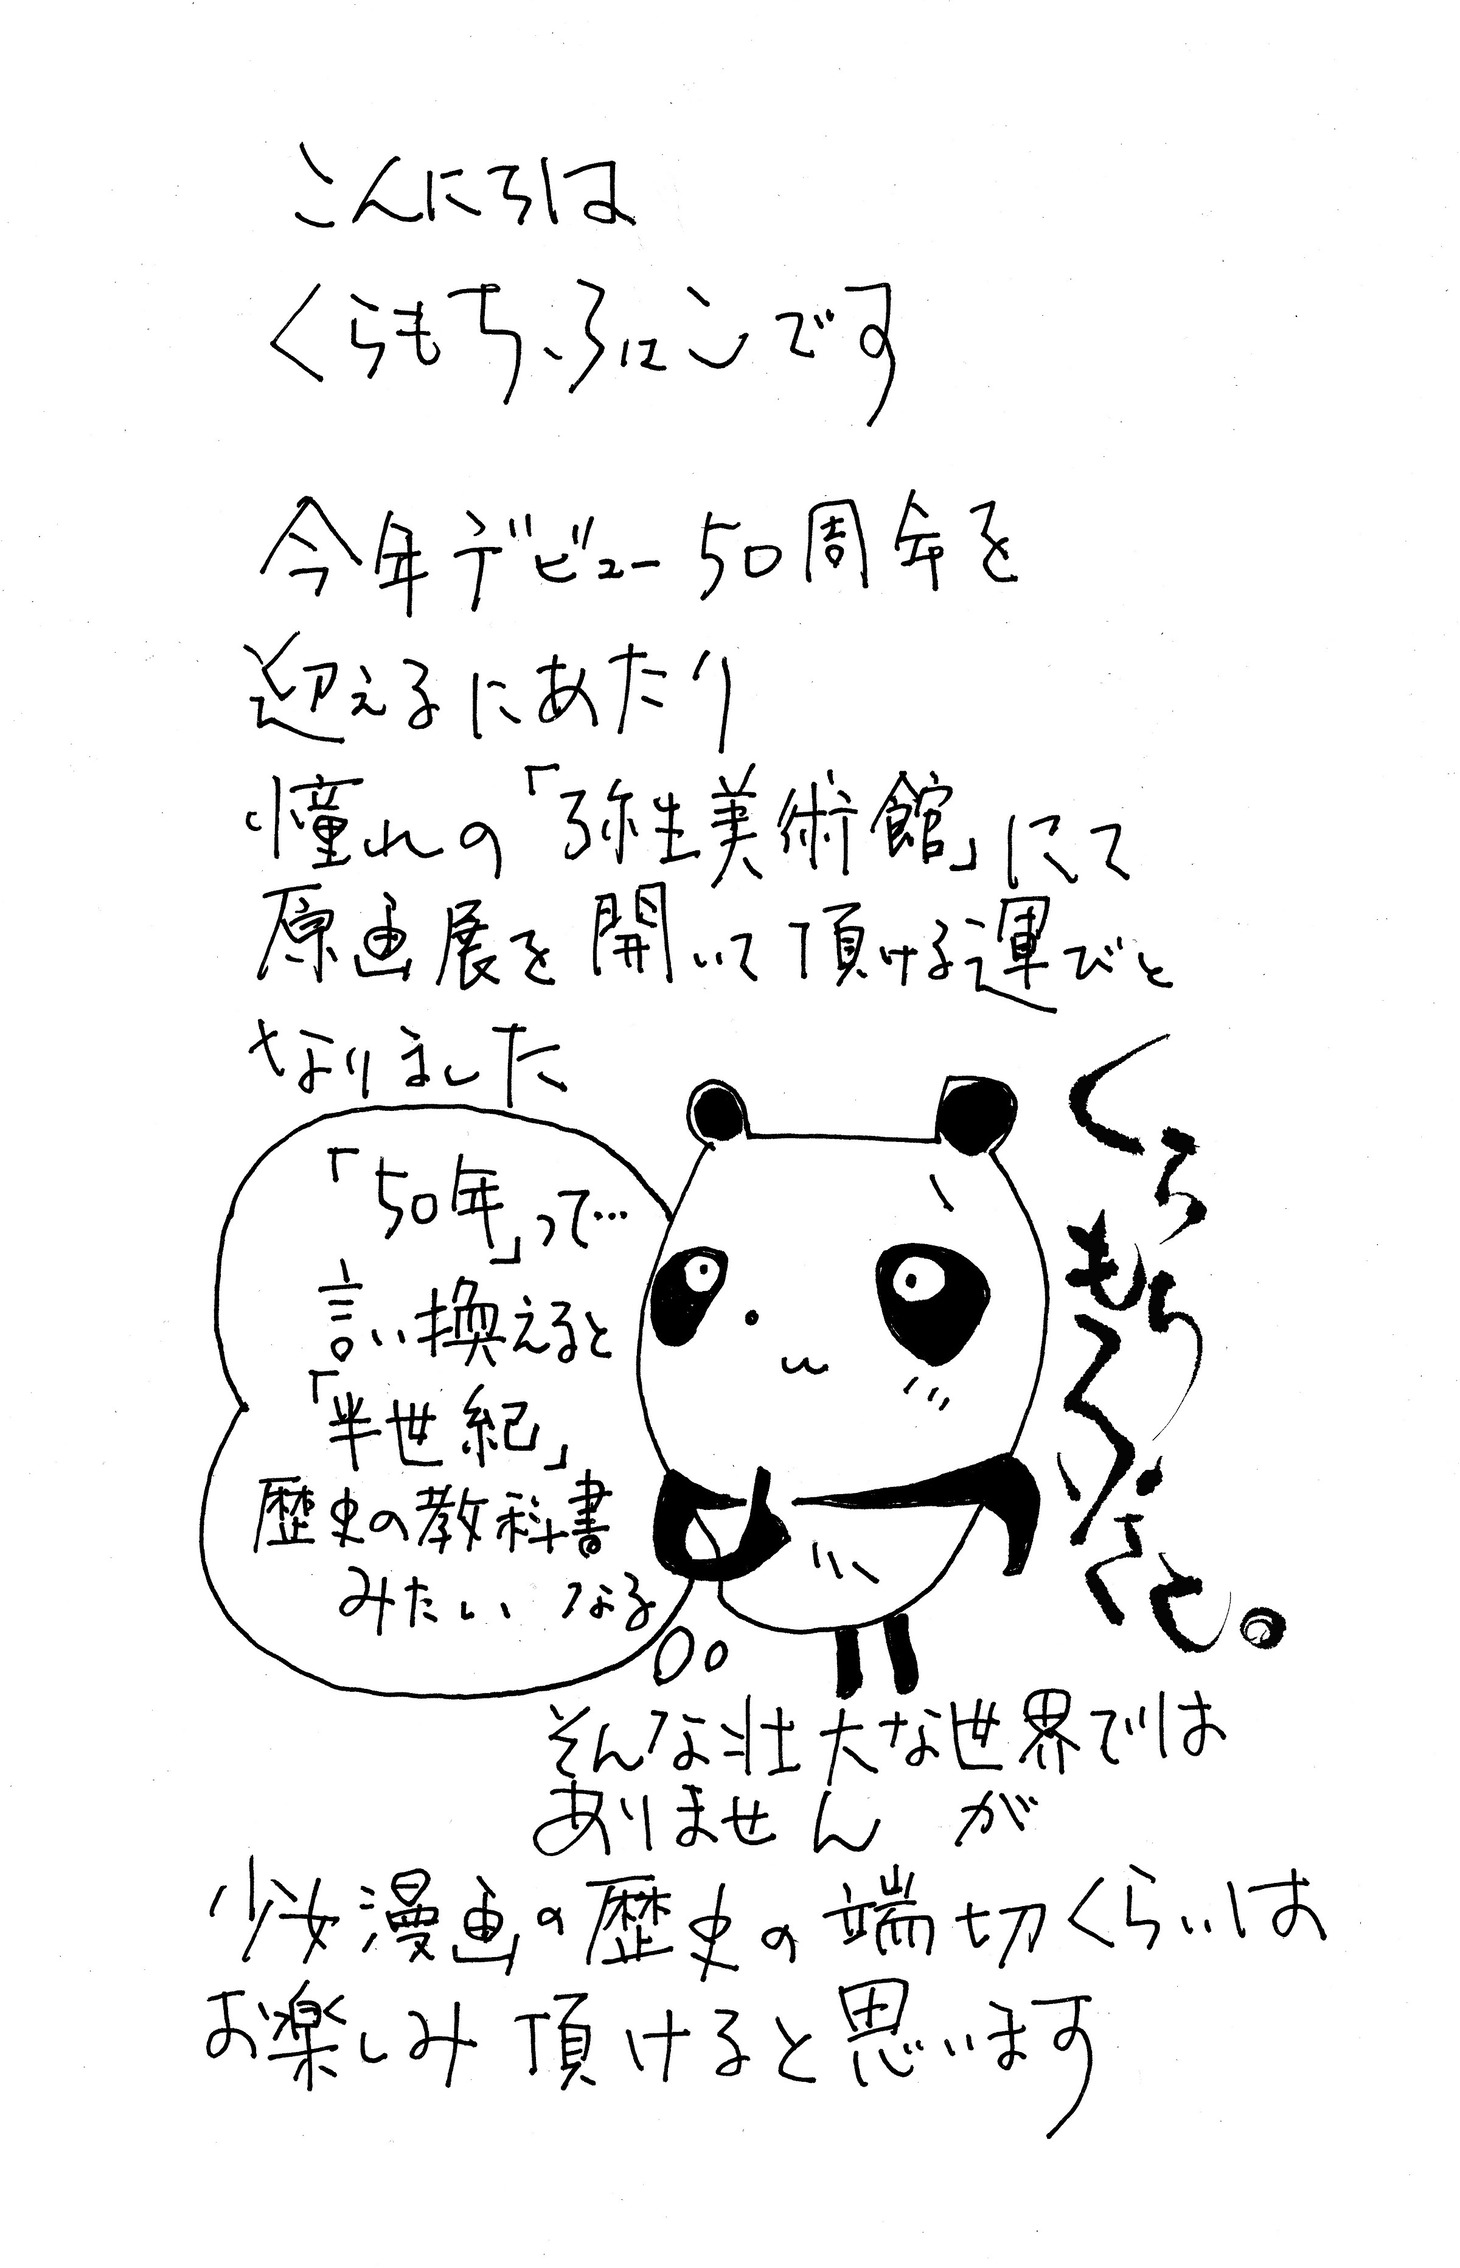 こんにちは
くらもちふさこです
今年デビュー50周年を
迎えるにあたり
憧れの「弥生美術館」にて
原画展を開いて頂ける運びと
なりました
「50年」って…
言い換えると
「半世紀」
歴史の教科書
みたいなる
くらもちふさこ。
そんな壮大な世界では
ありませんが
少女漫画の歴史の端切くらいは
お楽しみ頂けると思います